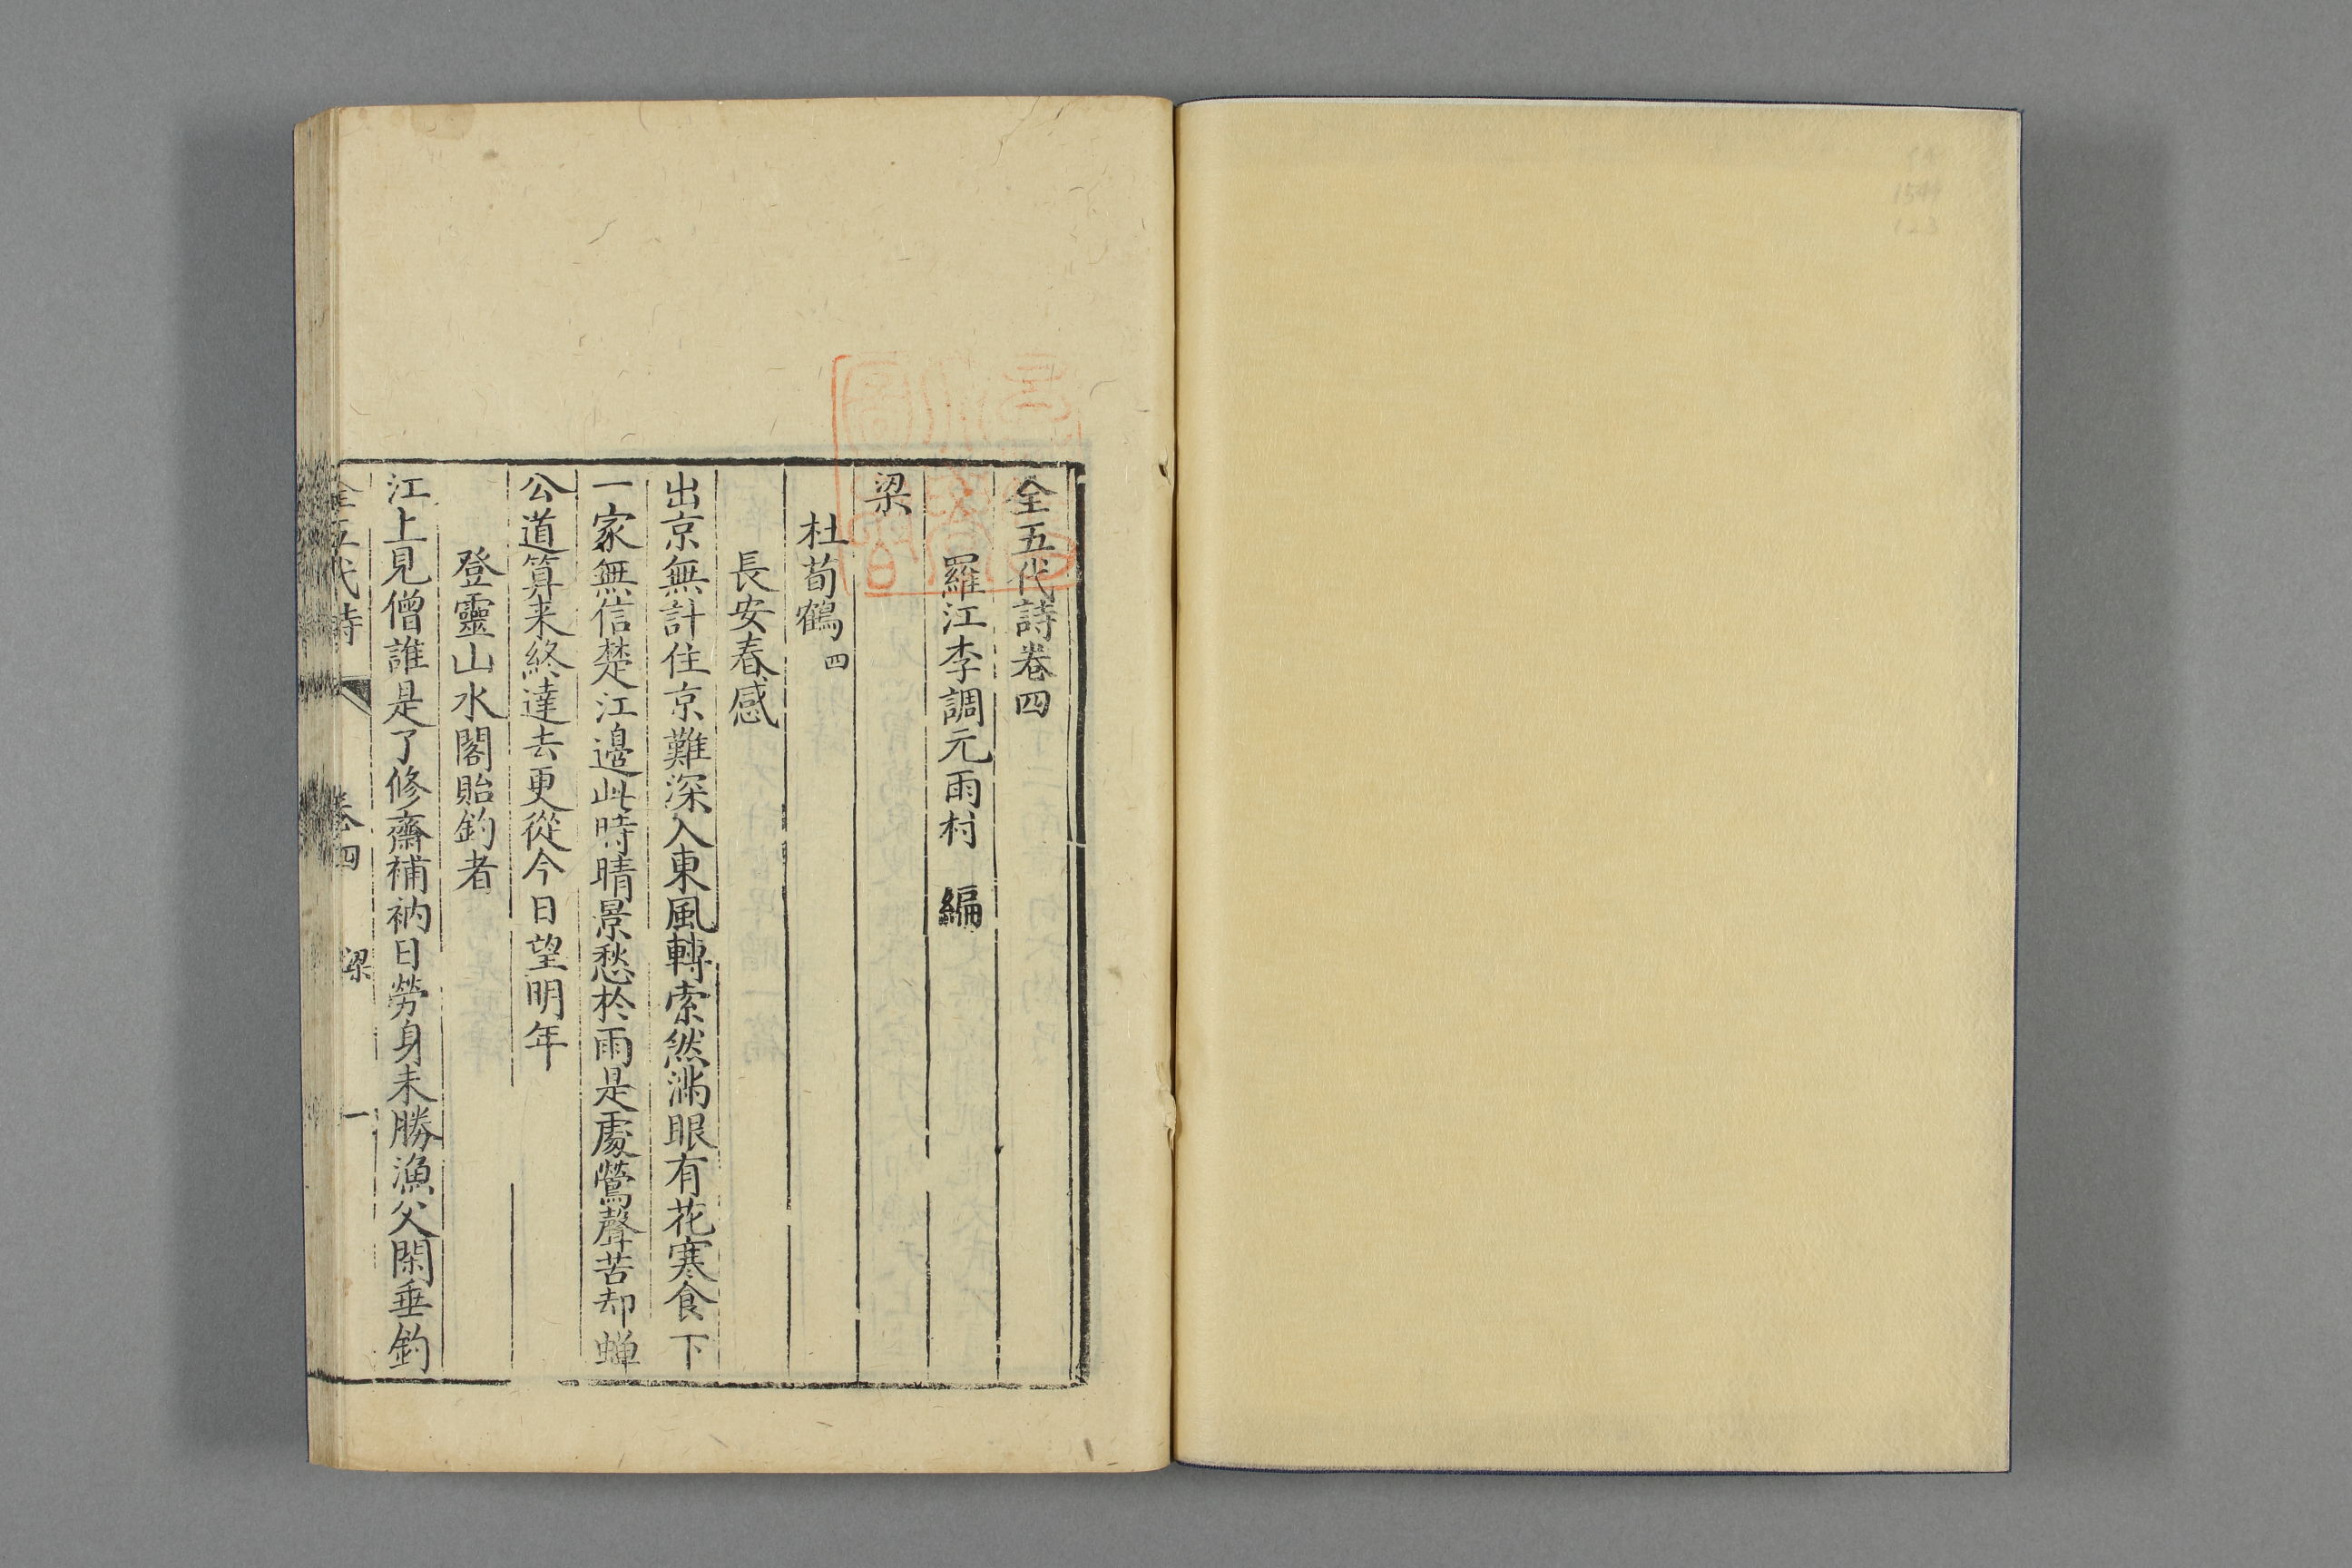 全五代詩卷四
羅江李調元雨村 編
梁
杜荀鶴 四
長安春感
出京無計住京難深入東風轉索然滿眼有花寒食下
一家無信楚江邊此時晴景愁於雨是處鶯聲苦却蟬
公道算来終達去更從今日望明年
登靈山水閣貽釣者
江上見僧誰是了修齋補衲日勞身未勝漁父閑垂釣
全五代詩 卷四 梁 一